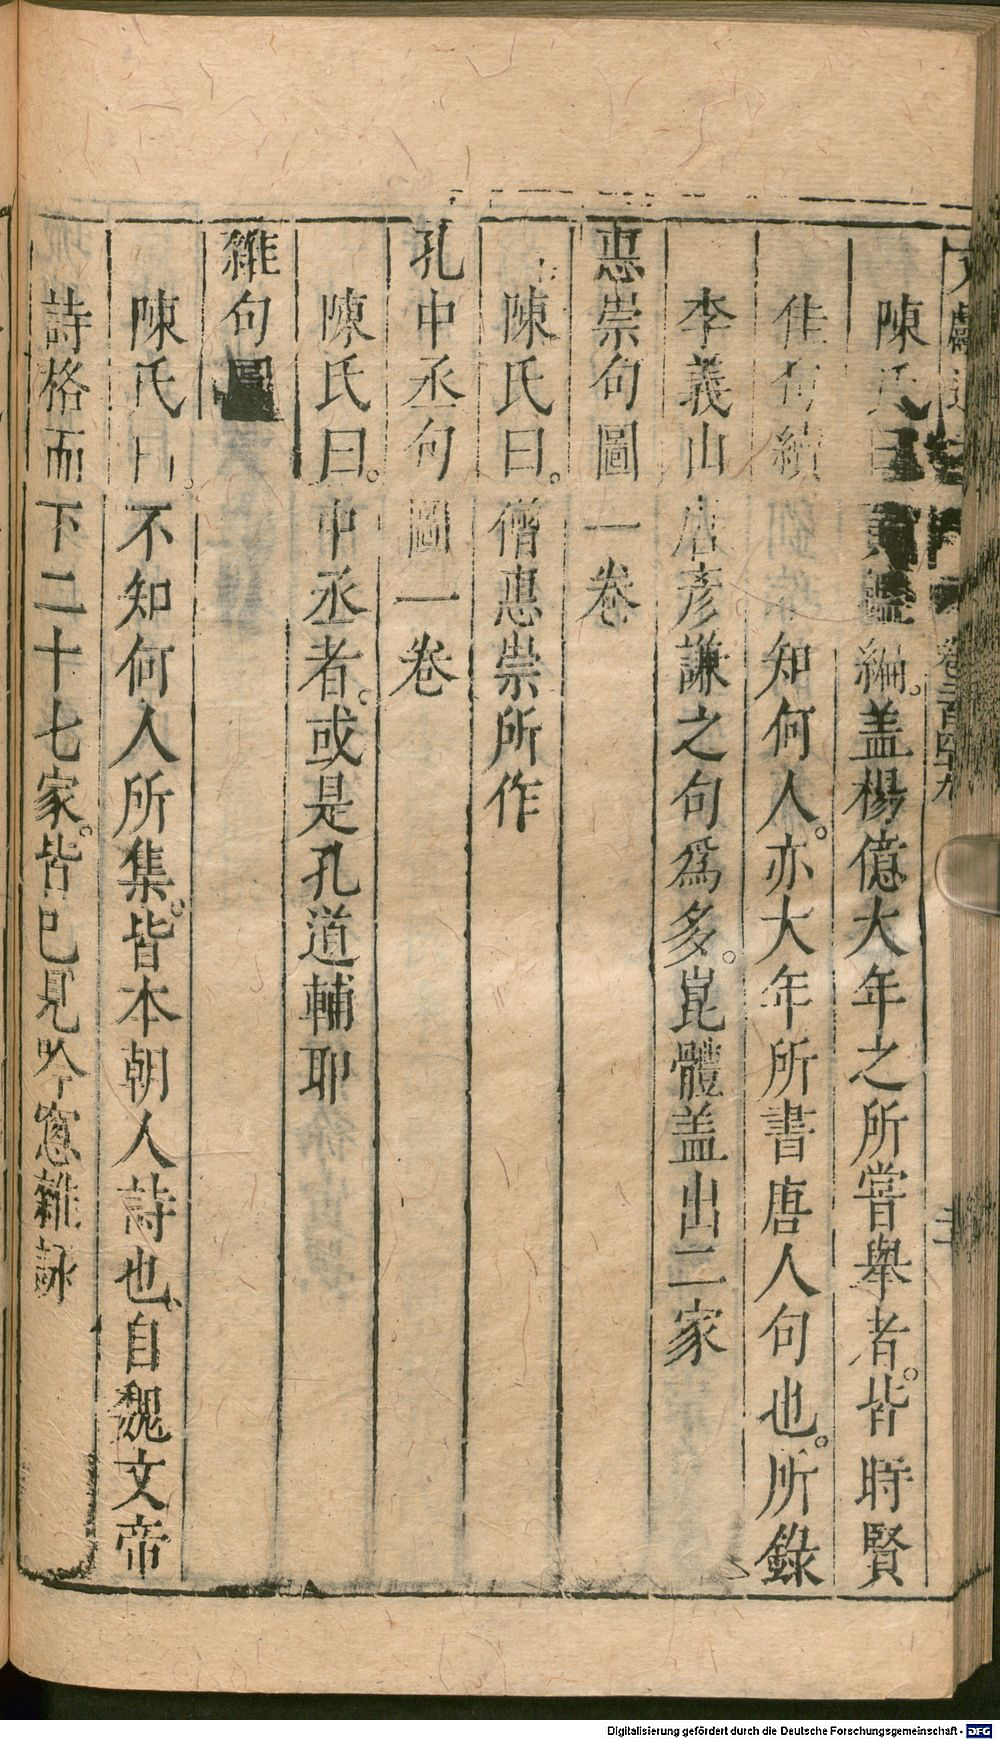 文獻通 卷二百四十九
陳氏曰黃鑑編。盖楊億大年之所嘗舉者。皆時賢
佳句續 知何人。亦大年所書唐人句也。所錄
李義山唐彥謙之句爲多。崑體盖出二家
惠崇句圖一卷
陳氏曰。僧惠崇所作
孔中丞句圖一卷
陳氏曰。中丞者。或是孔道輔耶
雜句圖
陳氏曰。不知何人所集。皆本朝人詩也、自魏文帝
詩格而下二十七家。皆已見吟窻雜詠
Digitalisierung gefördert durch die Deutsche Forschungsgemeinschaft - DFG